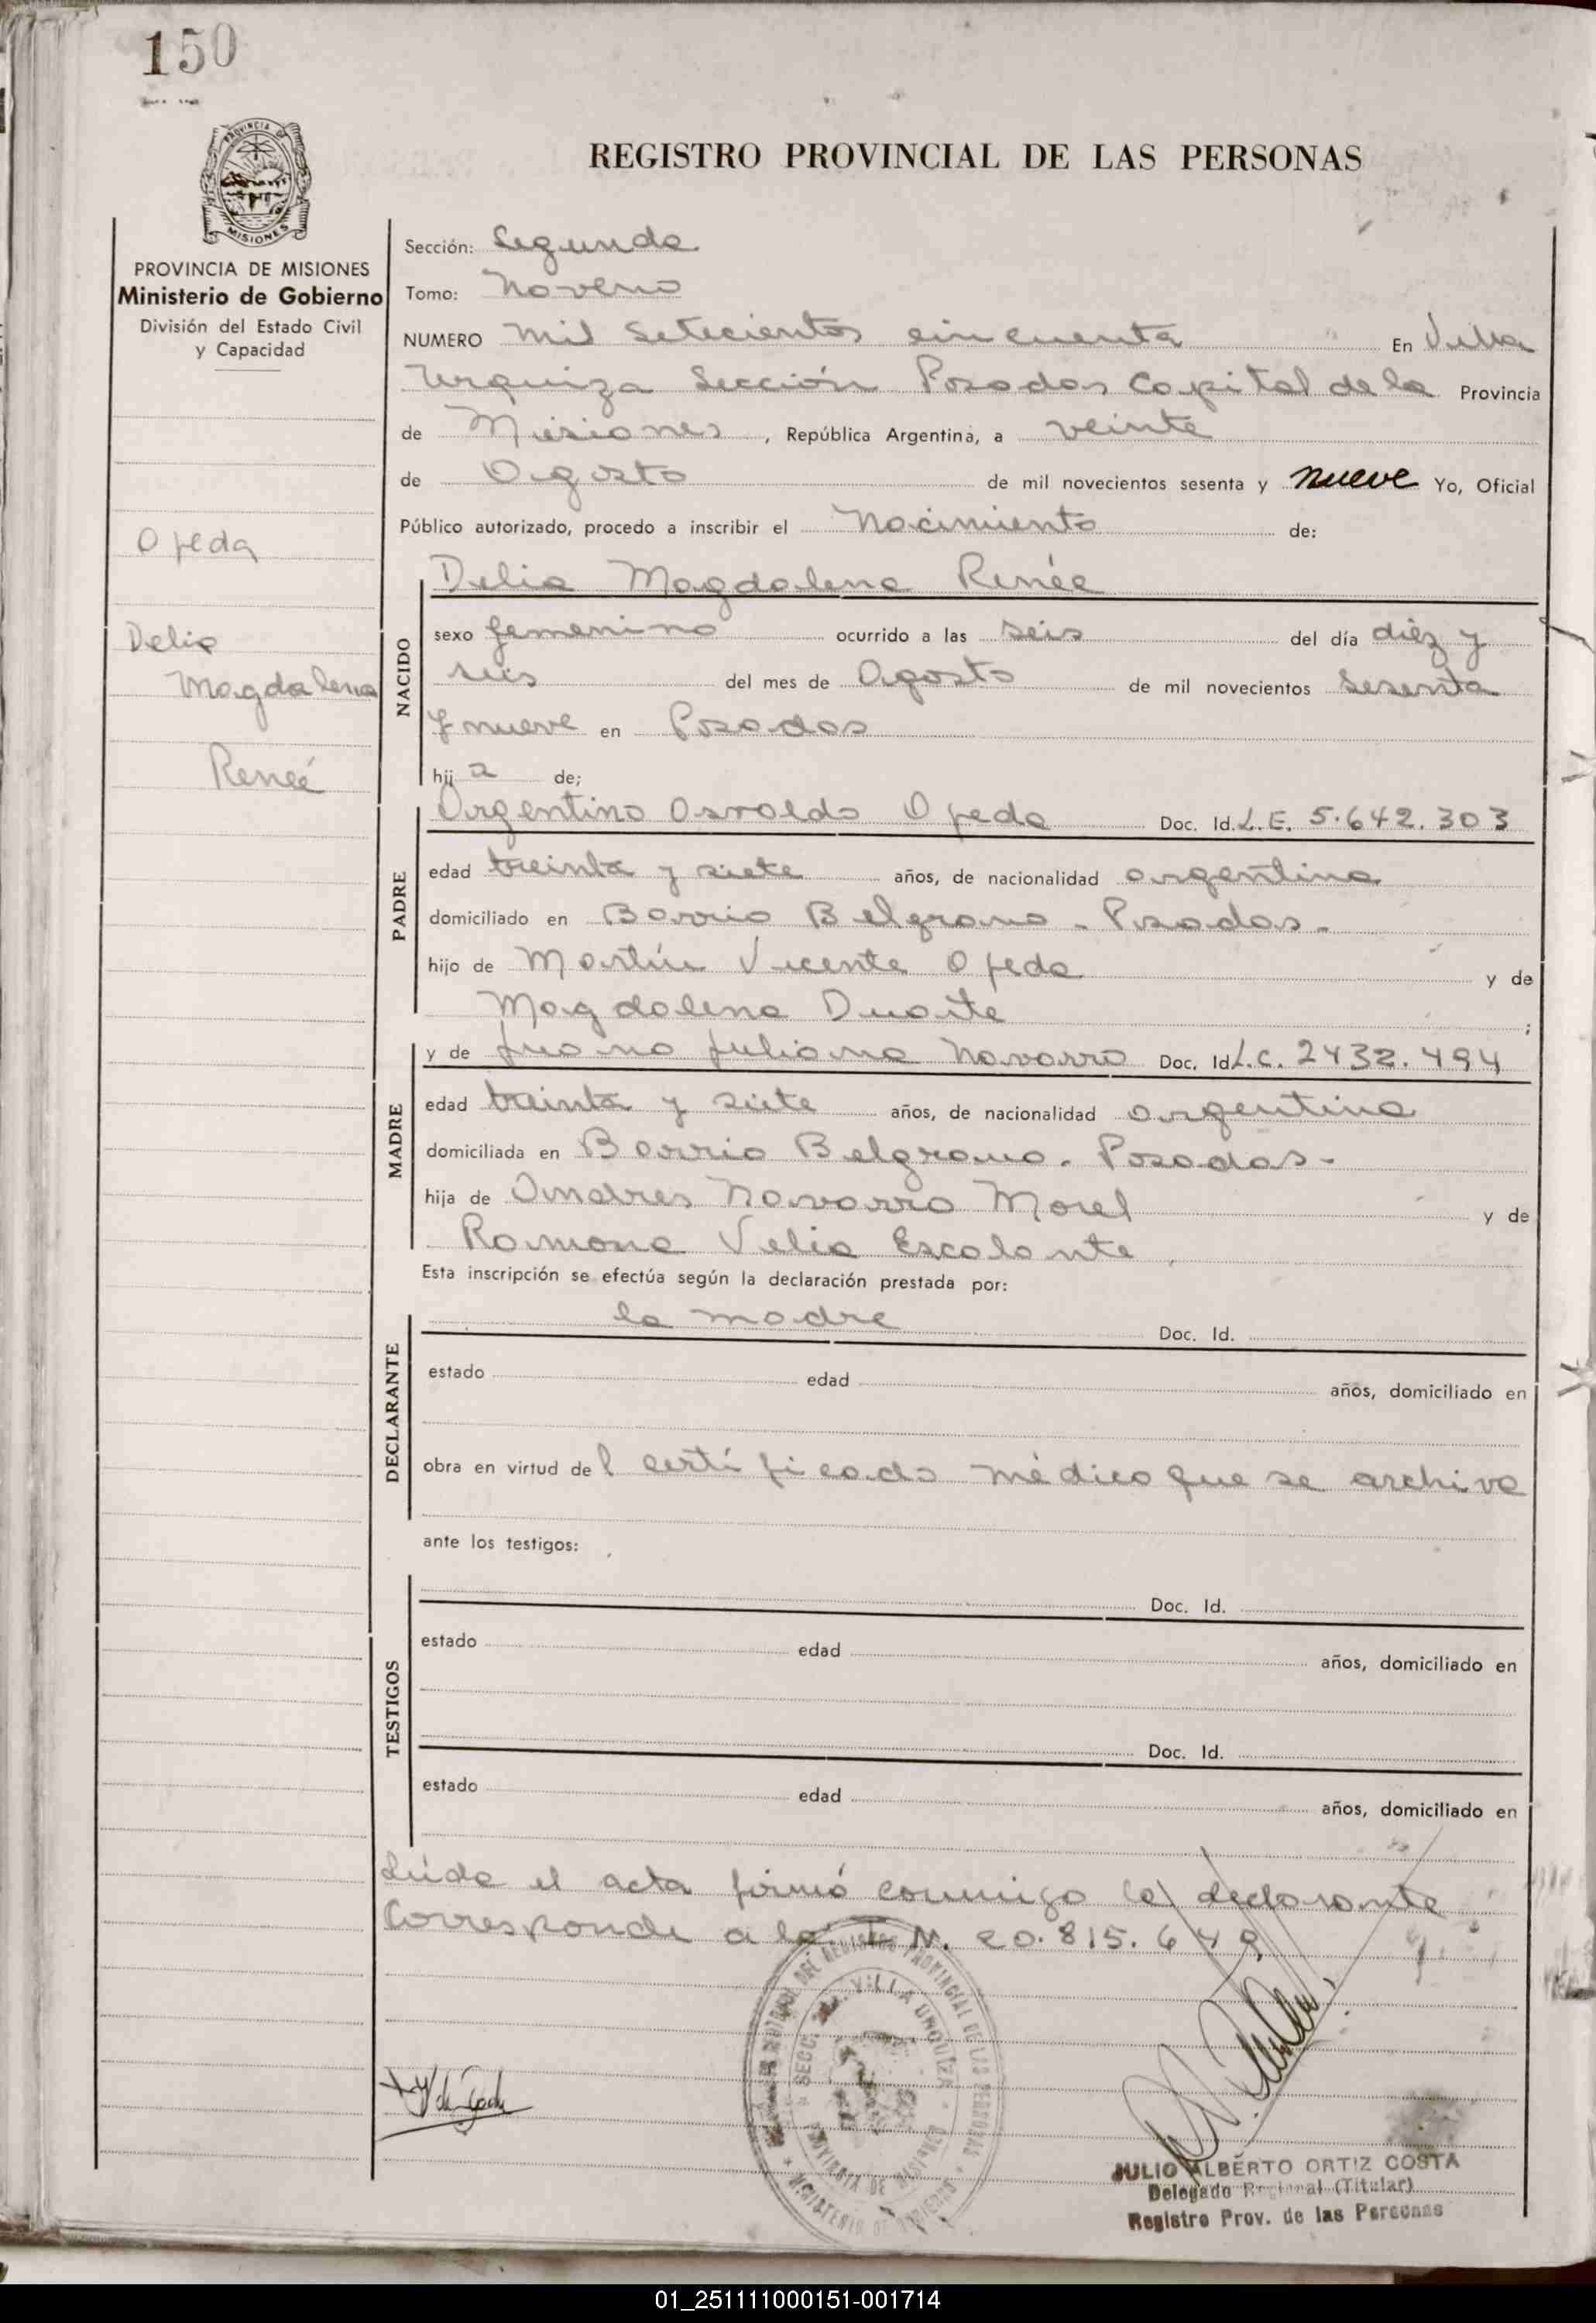 150
PROVINCIA DE
MISIONES
PROVINCIA DE MISIONES
Ministerio de Gobierno
División del Estado Civil
y Capacidad
Ojeda
Delia
Magdalena
Reneé
REGISTRO PROVINCIAL DE LAS PERSONAS
Sección: Segunda
Tomo: Noveno
NUMERO mil setecientos cincuenta En Villa
Urquiza Sección Posadas Capital de la Provincia
de Misiones, República Argentina, a veinte
de Agosto de mil novecientos sesenta y nueve Yo, Oficial
Público autorizado, procedo a inscribir el Nacimiento de:
Delia Magdalena Renée
NACIDO
sexo femenino ocurrido a las seis del día diéz y
seis del mes de Agosto de mil novecientos sesenta
y nueve en Posadas
hija de;
PADRE
Argentino Osvaldo Ojeda Doc. Id. L.E. 5.642.303
edad treinta y siete años, de nacionalidad argentina
domiciliado en Barrio Belgrano - Posadas.
hijo de Martín Vicente Ojeda y de
Magdalena Duarte ;
MADRE
y de Juana Juliana Navarro Doc. Id L.C. 2432.494
edad treinta y siete años, de nacionalidad argentina
domiciliada en Barrio Belgrano. Posadas-
hija de Andres Navarro Morel y de
Ramona Velia Escalante
Esta inscripción se efectúa según la declaración prestada por:
DECLARANTE
la madre Doc. Id.
estado edad años, domiciliado en
obra en virtud del certificado médico que se archiva
ante los testigos:
TESTIGOS
Doc. Id.
estado edad años, domiciliado en
Doc. Id.
estado edad años, domiciliado en
Leída el acta firmó conmigo la declarante
Corresponde a la I N. 20.815.649
SECC. VILLA URQUIZA
JULIO ALBERTO ORTIZ COSTA
Delegado Regional (Titular)
Registro Prov. de las Personas
01_251111000151-001714